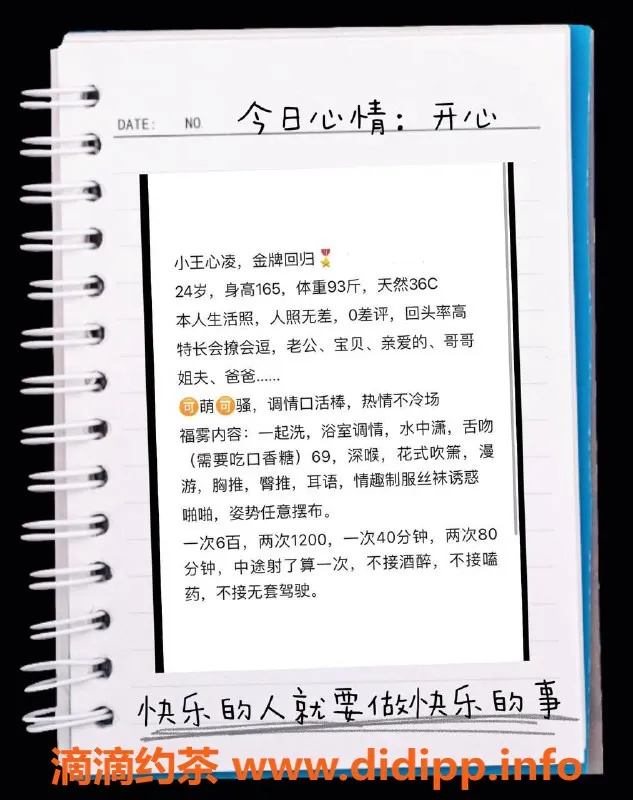 DATE: NO 今日心情：开心
小王心凌，金牌回归🎖️
24岁，身高165，体重93斤，天然36C
本人生活照，人照无差，0差评，回头率高
特长会撩会逗，老公、宝贝、亲爱的、哥哥
姐夫、爸爸......
可萌可骚，调情口活棒，热情不冷场
福雾内容：一起洗，浴室调情，水中潇，舌吻
（需要吃口香糖）69，深喉，花式吹箫，漫
游，胸推，臀推，耳语，情趣制服丝袜诱惑
啪啪，姿势任意摆布。
一次6百，两次1200，一次40分钟，两次80
分钟，中途射了算一次，不接酒醉，不接嗑
药，不接无套驾驶。
快乐的人就要做快乐的事
滴滴约茶 www.didipp.info